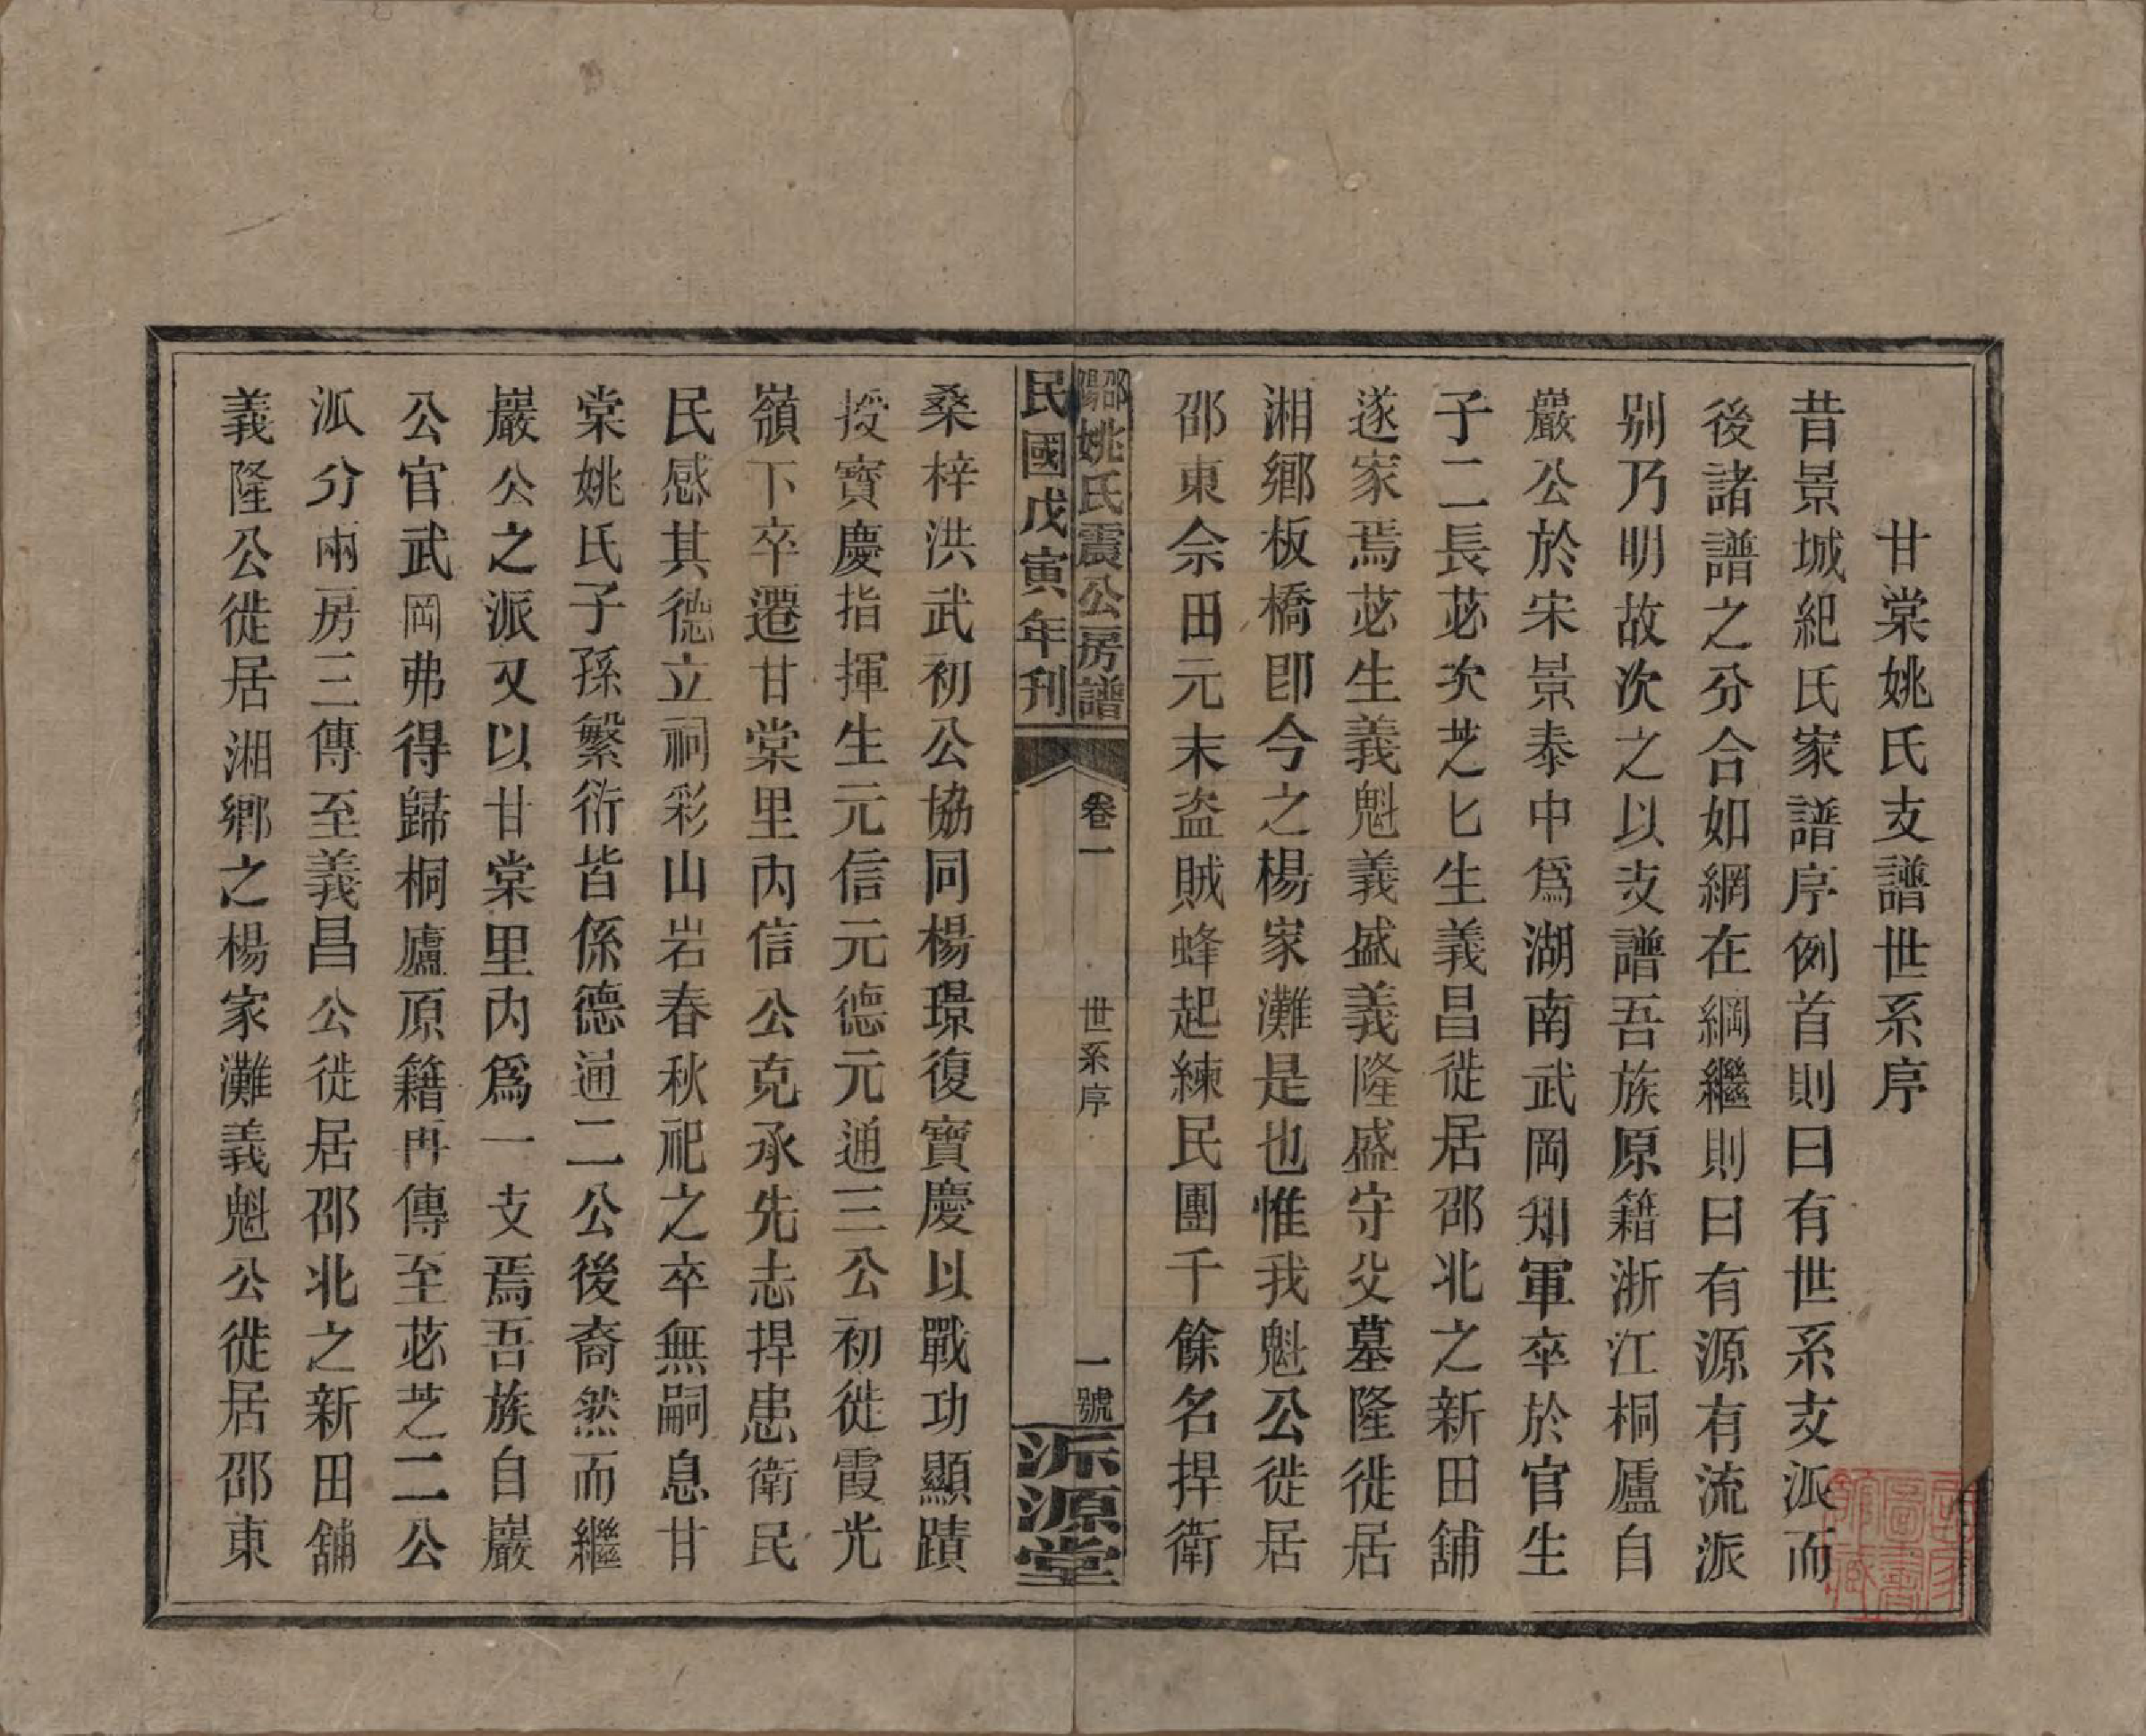 甘棠姚氏支譜世系序
昔景城紀氏家譜序例首則曰有世系支派而
後諸譜之分合如網在綱繼則曰有源有流派
别乃明故次之以支譜吾族原籍浙江桐廬自
巖公於宋景泰中爲湖南武岡知軍卒於官生
子二長苾次芝匕生義昌徙居邵北之新田舖
遂家焉苾生義魁義盛義隆盛守父墓隆徙居
湘鄉板橋即今之楊家灘是也惟我魁公徙居
邵東佘田元末盜賊蜂起練民團千餘名捍衛
邵陽姚氏震公房譜
卷一
世系序
一號
民國戊寅年刊
派源堂
桑梓洪武初公協同楊璟復寶慶以戰功顯蹟
授寶慶指揮生元信元德元通三公初徙霞光
嶺下卒遷甘棠里内信公克承先志捍患衛民
民感其德立祠彩山岩春秋祀之卒無嗣息甘
棠姚氏子孫繁衍皆係德通二公後裔然而繼
巖公之派又以甘棠里内爲一支焉吾族自巖
公官武岡弗得歸桐廬原籍再傳至苾芝二公
派分兩房三傳至義昌公徙居邵北之新田舖
義隆公徙居湘鄉之楊家灘義魁公徙居邵東